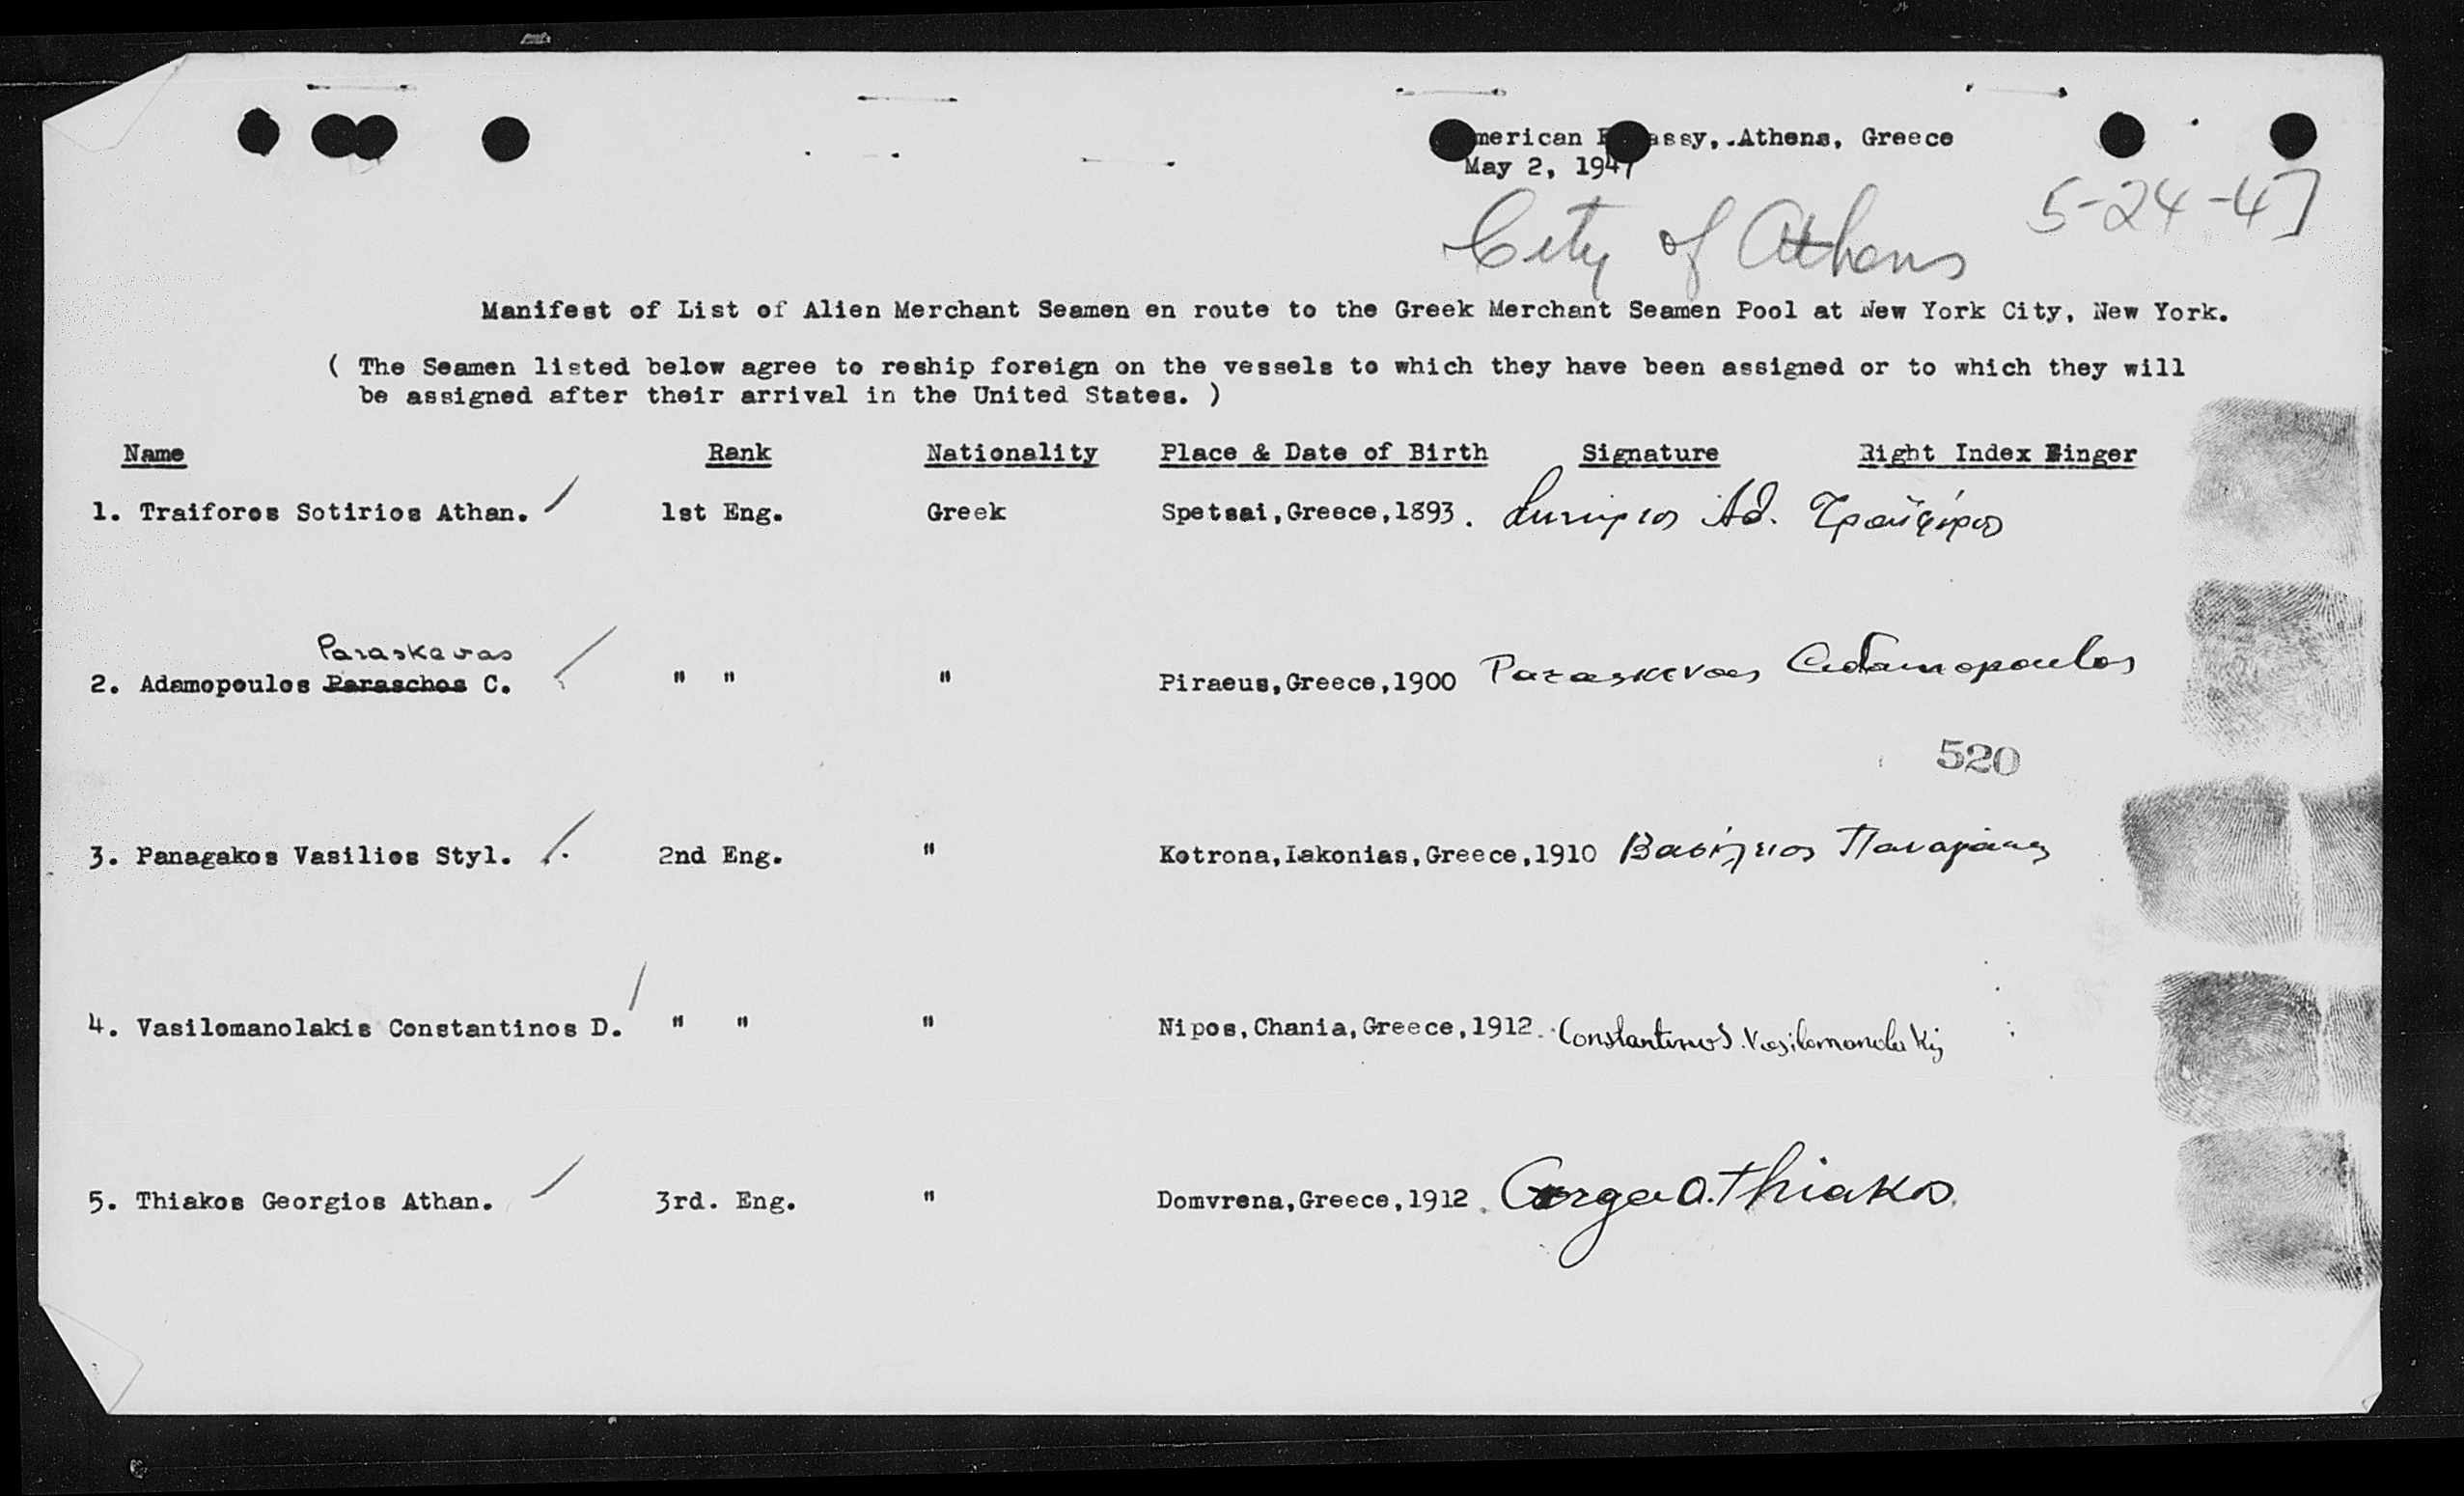 American Embassy, Athens, Greece
May 2, 1947
5-24-47
City of Athens
Manifest of List of Alien Merchant Seamen en route to the Greek Merchant Seamen Pool at New York City, New York.
( The Seamen listed below agree to reship foreign on the vessels to which they have been assigned or to which they will
be assigned after their arrival in the United States. )
Name Rank Nationality Place & Date of Birth Signature Right Index Finger
1. Traiforos Sotirios Athan. 1st Eng. Greek Spetsai,Greece,1893. Σωτήριος Αθ. Τραϊφόρος
Paraskevas
2. Adamopoulos Paraschos C. " " " Piraeus,Greece,1900 Paraskevas Adamopoulos
520
3. Panagakos Vasilios Styl. 2nd Eng. " Kotrona,Lakonias,Greece,1910 Βασίλειος Παναγάκος
4. Vasilomanolakis Constantinos D. " " " Nipos,Chania,Greece,1912. Constantinos Vasilomanolakis
5. Thiakos Georgios Athan. 3rd. Eng. " Domvrena,Greece,1912. George A. Thiakos